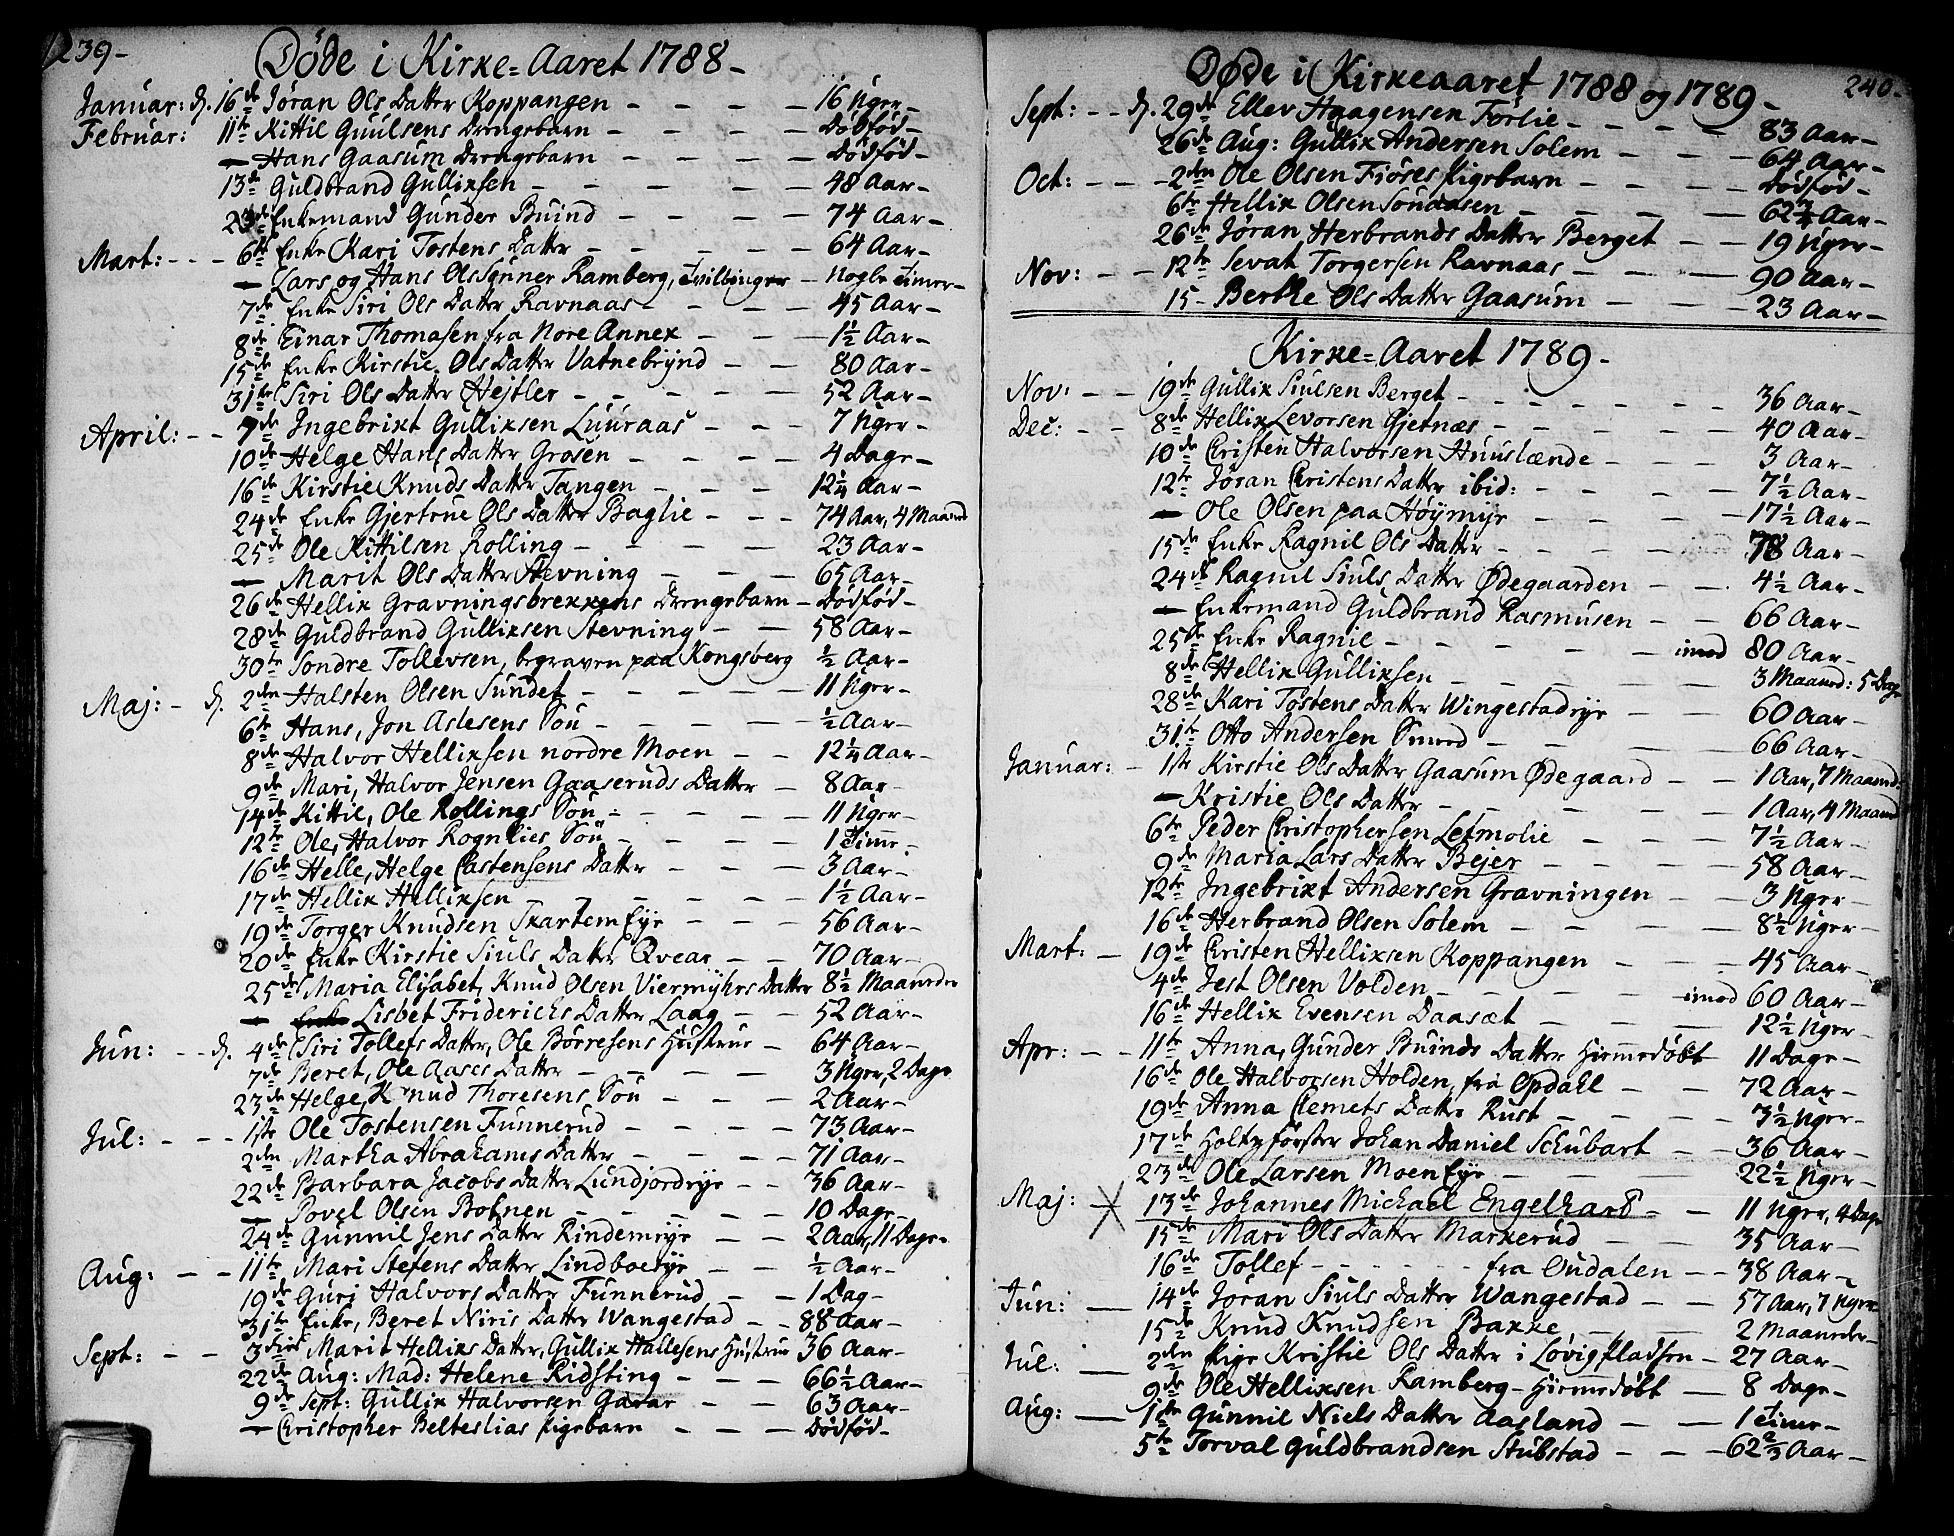 239-
Døde i Kirke=Aaret 1788-
Januar: d. 16de Jøran Ols Datter Koppangen - - - - 16 Uger-
Februar: 11te Kittil Guulsens Drengebarn - - - - Dödföd-
- Hans Gaasum Drengebarn - - - - Dödföd-
13de Guldbrand Gullixsen - - - - - 48 Aar-
23de Enkemand Gunder Buind - - - - 74 Aar-
Mart: - - - 6te Enke Kari Tostens Datter - - - - 64 Aar-
- Lars og Hans Ols Sønner Ramberg, Tvillinger - Nogle Timer-
7de Enke Siri Ols Datter Ravnaas - - - - 45 Aar-
8de Einar Thomasen fra Nore Annex - - - 1½ Aar-
15de Enke Kirstie Ols Datter Vatnebrynd - - 80 Aar-
31te Siri Ols Datter Hejtler - - - - - 52 Aar-
April: - - 7de Ingebrixt Gullixsen Luuraas - - - 7 Uger-
10de Helge Hans Datter Grosen - - - - 4 Dage-
16de Kirstie Knuds Datter Tangen - - - 12¼ Aar-
24de Enke Gjertrue Ols Datter Baglie - - - 74 Aar, 4 Maaned
25de Ole Kittilsen Rolling - - - - - 23 Aar-
- Marit Ols Datter Stevning - - - 65 Aar-
26de Hellix Gravningsbrekkens Drengebarn - Dödföd-
28de Guldbrand Gullixsen Stevning - - 58 Aar-
30te Sondre Tollevsen, begraven paa Kongsberg ½ Aar-
Maj: - d. 2den Halsten Olsen Sundet - - - - - 11 Uger-
6te Hans, Jon Aslesens Søn - - - - ½ Aar-
8de Halvor Hellixsen nordre Moen - - 12¼ Aar-
9de Mari, Halvor Jensen Gaaseruds Datter - 8 Aar-
14de Kittil, Ole Rollings Søn - - - - - 11 Uger-
12te Ole, Halvor Rognlies Søn - - - - 1 Time-
16de Helle, Helge Castensens Datter - - - 3 Aar-
17de Hellix Hellixsen - - - - - 1½ Aar-
19de Torger Knudsen Skartem Eye - - - 56 Aar-
20de Enke Kirstie Siuls Datter Qvear - - 70 Aar-
25de Maria Elisabet, Knud Olsen Viermyhrs Datter 8½ Maaneder
- Lisbet Friderichs Datter Laag - - 52 Aar-
Jun: - - d. 4de Siri Tollefs Datter, Ole Börresens Hustrue - 64 Aar-
7de Beret, Ole Aases Datter - - - - 3 Uger, 2 Dage
23de Helge, Knud Thoresens Søn - - - 2 Aar-
Jul: - - - 1ste Ole Tostensen Funnerud - - - - 73 Aar-
2den Martha Abrahams Datter - - - - 71 Aar-
22de Barbara Jacobs Datter Lundjordeye - - 36 Aar-
- Povel Olsen Botnen - - - - - 10 Dage-
24de Gunnil Jens Datter Rindemeye - - 2 Aar, 11 Dage-
Aug: - - 11te Mari Stefens Datter Lindboeeye - - ½ Aar-
19de Guri Halvors Datter Funnerud - - 1 Dag-
31te Enke, Beret Niris Datter Wangestad - - 88 Aar-
Sept: - - 3die Marit Hellixs Datter, Gullix Hallesens Hustrue 36 Aar-
22de Aug: Mad: Helene Ridsting - - - 66½ Aar-
9de Sept: Gullix Halvorsen Garar - - 63 Aar-
- Christopher Belteslias Pigebarn - - - Dödföd-
240.
Døde i Kirkeaaret 1788 og 1789-
Sept: - - d. 29de Ellev Haagensen Førlie - - - - 83 Aar-
26de Aug: Gullix Andersen Solem - - - 64 Aar-
Oct: - - - 2den Ole Olsen Fiöses Pigebarn - - - - Dödföd-
6te Hellix Olsen - - - - 62¾ Aar-
26de Jøran Herbrands Datter Berget - - 19 Uger-
Nov: - - 12te Sevat Torgersen Ravnaas - - - - 90 Aar-
15- Berthe Ols Datter Gaasum - - - 23 Aar-
Kirke=Aaret 1789-
Nov: - - 19de Gullix Siulsen Berget - - - - - - 36 Aar-
Dec: - - 8de Hellix Levorsen Gjetnæs - - - - - 40 Aar-
10de Christen Halvorsen Huuslænde - - - 3 Aar-
12te Jøran Christens Datter ibid: - - - - 7½ Aar-
- Ole Olsen paa Høymyr - - - - - 17½ Aar-
15de Enke Ragnil Ols Datter - - - - - 78 Aar-
24de Ragnil Siuls Datter Ødegaarden - - 4½ Aar-
- Enkemand Guldbrand Rasmusen - - 66 Aar-
25de Enke Ragnil - - - - - - imod 80 Aar-
8de Hellix Gullixsen - - - - - 3 Maaned: 5 Dage
28de Kari Tostens Datter Wingestadeye - - 60 Aar-
31te Otto Andersen Smed - - - - 66 Aar-
Januar: - 1ste Kirstie Ols Datter Gaasum Ødegaard - - 1 Aar, 7 Maaned:
- Kristie Ols Datter - - - - - 1 Aar, 4 Maaned
6te Peder Christophersen Lefmolie - - - 7½ Aar-
9de Maria Lars Datter Bejer - - - - 58 Aar-
12te Ingebrixt Andersen Gravningen - - 3 Uger-
16de Herbrand Olsen Solem - - - - 8½ Uger-
Mart: - 19de Christen Hellixsen Koppangen - - - 45 Aar-
4de Jest Olsen Volden - - - - - imod 60 Aar-
16de Hellix Evensen Daasæt - - - - 12½ Uger-
Apr: - - - 11te Anna, Gunder Buinds Datter Hiemedøbt 11 Dage-
16de Ole Halvorsen Holden, fra Opdahl - - 72 Aar-
19de Anna Clemets Datter Rust - - - 3½ Uger-
17de Holtzförster Johan Daniel Schubart - - 36 Aar-
23de Ole Larsen Moen Eye - - - - 22½ Uger-
Maj: X 13de Johannes Michael Engelhart - - 11 Uger, 4 Dage
15de Mari Ols Datter Markerud - - - 35 Aar-
16de Tollef - - - - - - fra Oudalen - - 38 Aar-
Jun: - 14de Jøran Siuls Datter Wangestad - - 57 Aar, 7 Uger
15de Knud Knudsen Bakke - - - 2 Maaneder-
Jul: - 2den Pige Kristie Ols Datter i Løvig Pladsen - 27 Aar-
9de Ole Hellixsen Ramberg - Hiemedøbt - 8 Dage-
Aug: - 1ste Gunnil Niels Datter Aasland - - 1 Time-
5te Torval Guldbrandsen Stubstad - - - 62⅔ Aar-